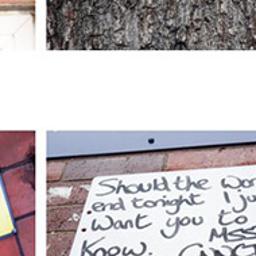 Should the
end tonight I
Want you to
Know.